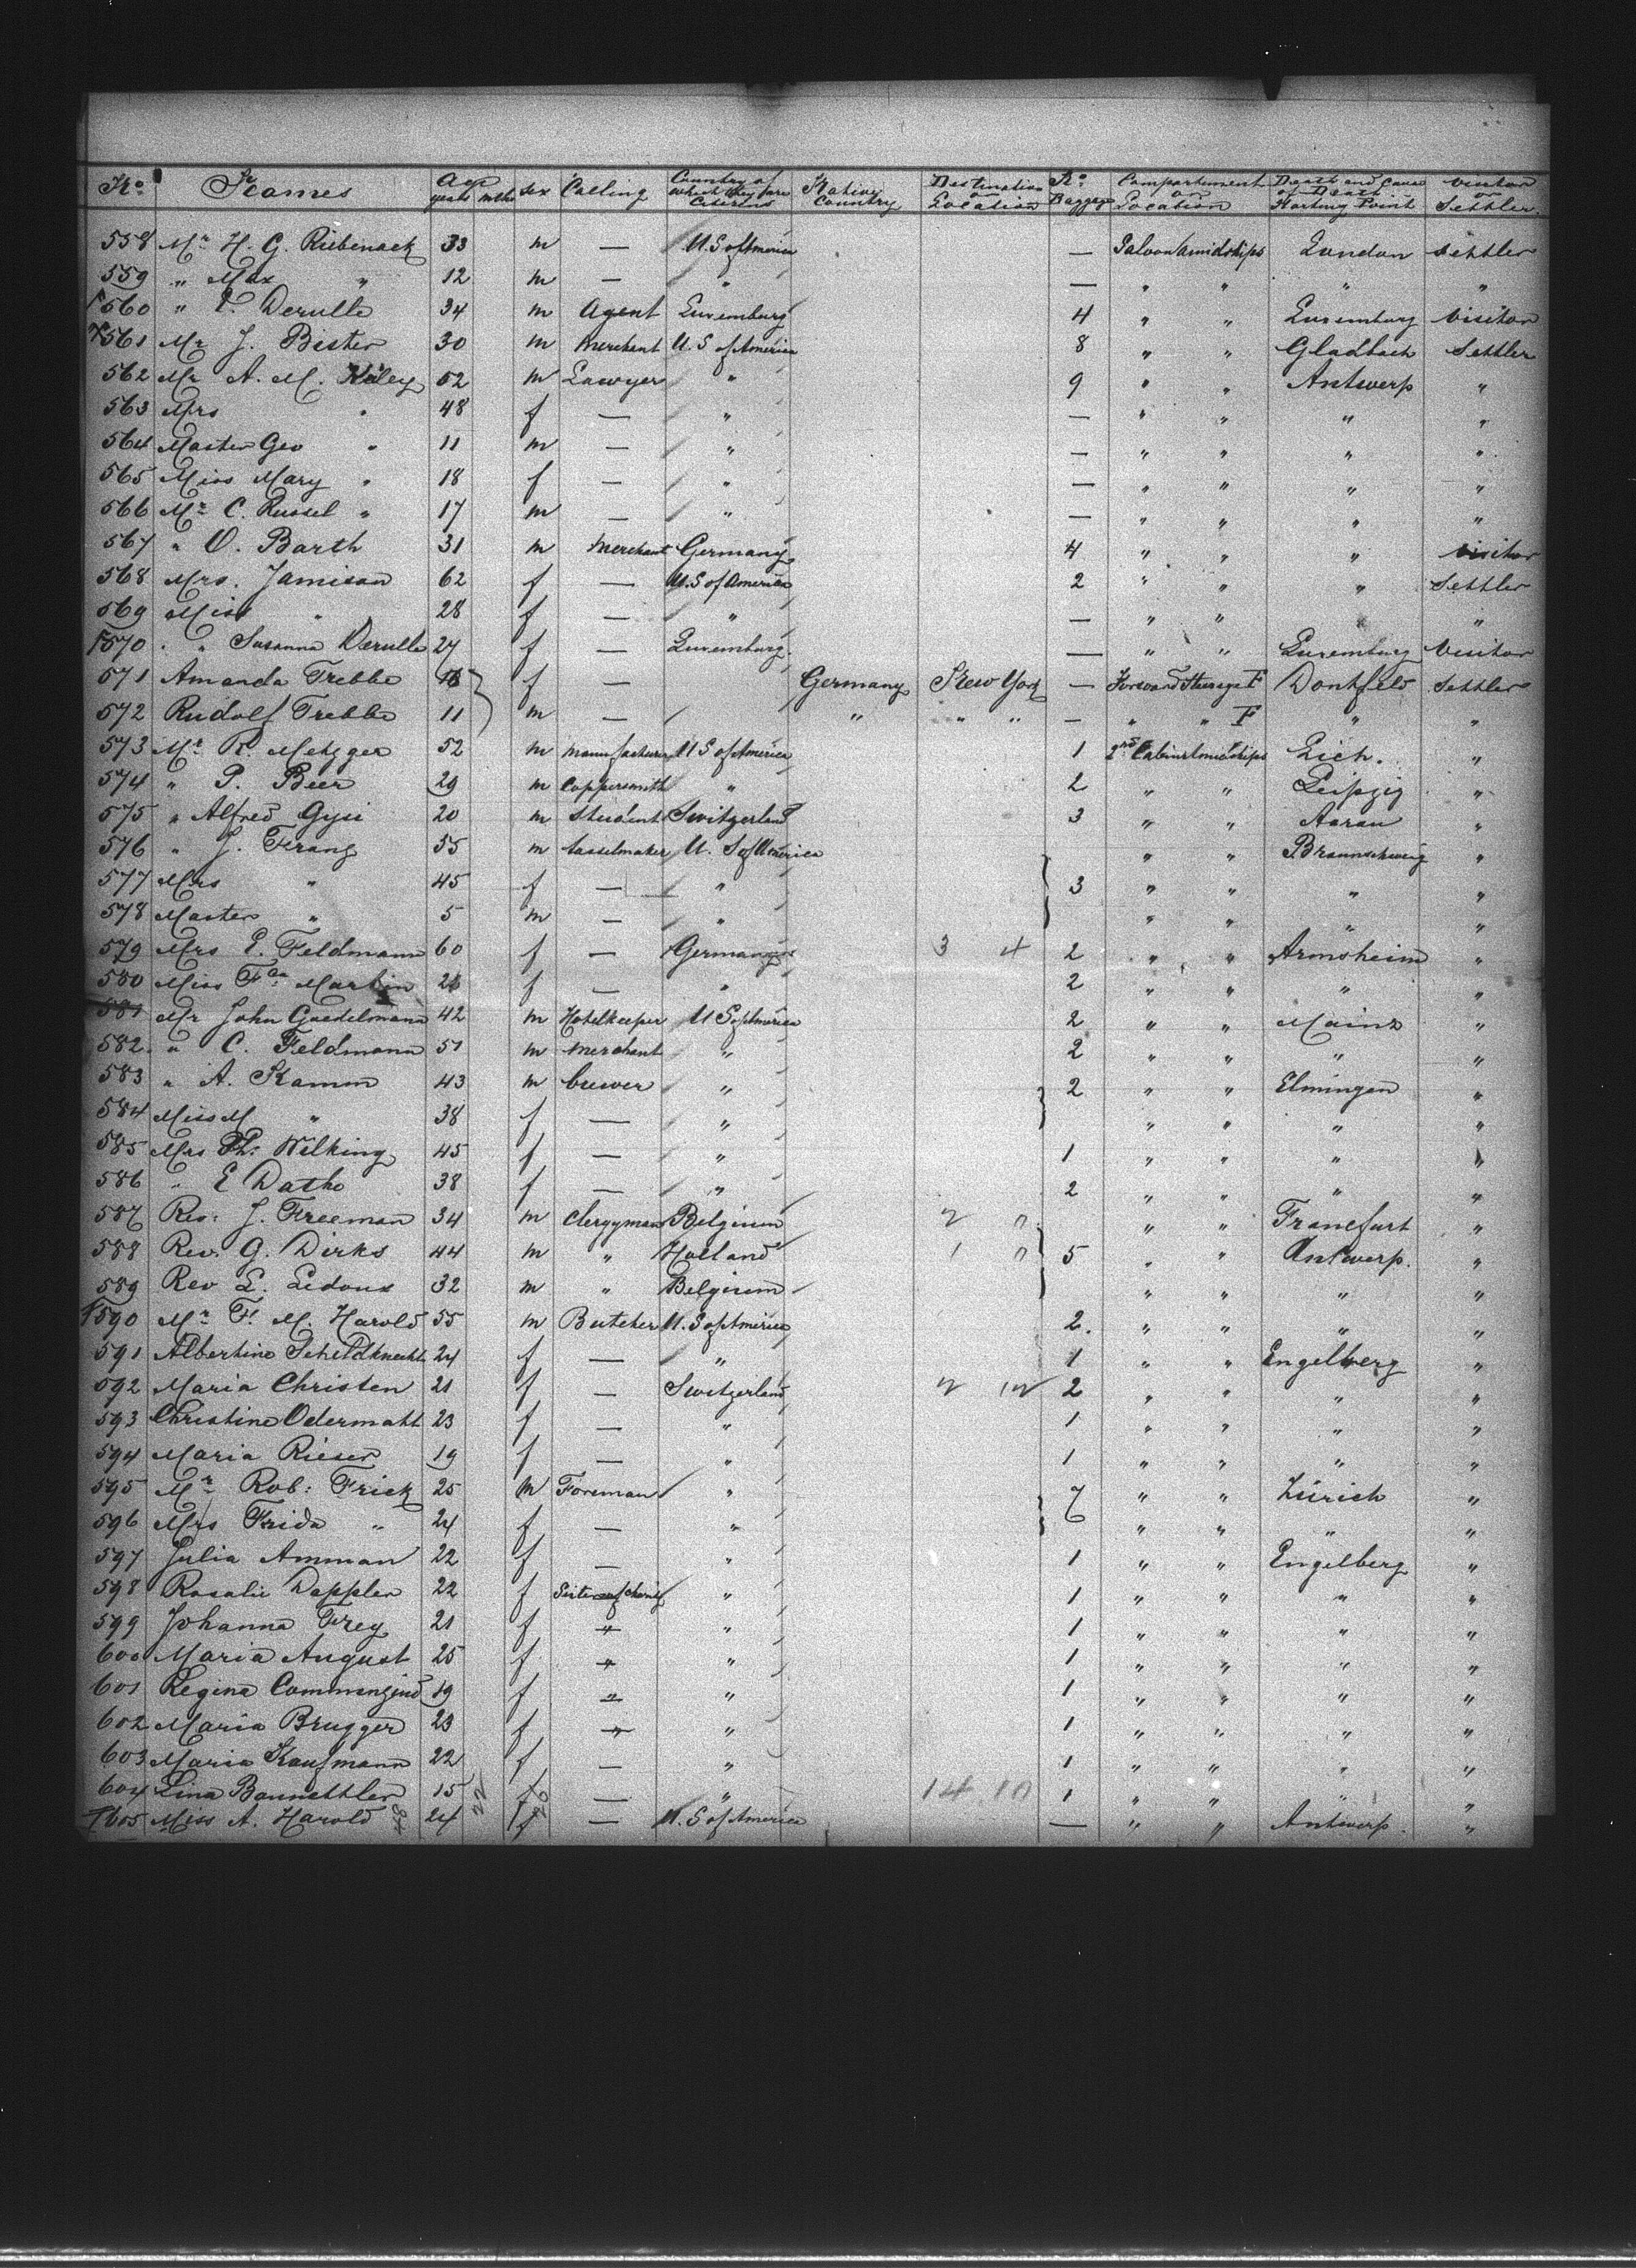 No. Names Age years mths Sex Calling Country of which they are Citizens Native Country Destination or Location No. Baggage Compartment or Location Death and Cause of Death Starting Point Visitor or Settler
558 Mr H. G. Riebenack 33 m — U.S of America — Saloon Amidships London Settler
559 " Max " 12 m — " — " " " "
560 " E. Derulle 34 m Agent Luxemburg 4 " " Luxemburg Visitor
561 Mr J. Bister 30 m Merchant U.S of America 8 " " Gladbach Settler
562 Mr A. M. Keiley 52 m Lawyer " 9 " " Antwerp "
563 Mrs " 48 f — " — " " " "
564 Master Geo " 11 m — " — " " " "
565 Miss Mary " 18 f — " — " " " "
566 Mr C. Russel " 17 m — " — " " " "
567 " O. Barth 31 m Merchant Germany 4 " " " Visitor
568 Mrs. Jamison 62 f — U.S of America 2 " " " Settler
569 Miss " 28 f — " — " " " "
570 " Susanna Derulle 27 f — Luxemburg — " " Luxemburg Visitor
571 Amanda Trebbe f — Germany New York — Forward Steerage F Settler
572 Rudolf Trebbe 11 m — " " " — " " F " "
573 Mr R. Metzger 52 m Manufacturer U S of America 1 2nd Cabin Amidships Lich. "
574 " P. Beer 29 m Coppersmith " 2 " " Leipzig "
575 " Alfred Gysi 20 m Student Switzerland 3 " " Aarau "
576 " J. Franz 55 m Tasselmaker U. S of America " " Braunschweig "
577 Mrs " 45 f — " 3 " " " "
578 Master " 5 m — " " " " "
579 Mrs E. Feldmann 60 f — Germany 3 4 2 " " Armsheim "
580 Miss Martin f — " 2 " " " "
581 Mr John Goedelmann 42 m Hotelkeeper U S of America 2 " " Mainz "
582 " C. Feldmann 51 m Merchant " 2 " " " "
583 " A. Kamm 43 m brewer " 2 " " Elmingen "
584 Miss M " 38 f — " " " " "
585 Mrs Ph: Wilking 45 f — " 1 " " " "
586 " E Dathe 38 f — " 2 " " " "
587 Rev: J. Freeman 34 m Clergyman Belgium " " Francfurt "
588 Rev. G. Dirks 44 m " Holland 5 " " Antwerp. "
589 Rev L. Ledoux 32 m " Belgium " " " "
590 Mr F. M. Harold 55 m Butcher U.S of America 2. " " " "
591 Albertine Scheldknecht 24 f — " 1 " " Engelberg "
592 Maria Christen 21 f — Switzerland 2 " " " "
593 Christine Odermatt 23 f — " 1 " " " "
594 Maria Rieser 19 f — " 1 " " " "
595 Mr Rob: Frick 25 m Foreman " 7 " " Zürich "
596 Mrs Frida " 24 f — " " " " "
597 Julia Amman 22 f — " 1 " " Engelberg "
598 Rosalie Dappler 22 f Sister of charity " 1 " " " "
599 Johanna Frey 21 f " " 1 " " " "
600 Maria August 25 f " " 1 " " " "
601 Regina Commenzind 19 f " " 1 " " " "
602 Maria Brugger 23 f " " 1 " " " "
603 Maria Kaufmann 22 f — " 1 " " " "
604 Lina Bannettler 15 f — " 14 10 1 " " " "
605 Miss A. Harold 24 f — U. S of America — " " Antwerp. "